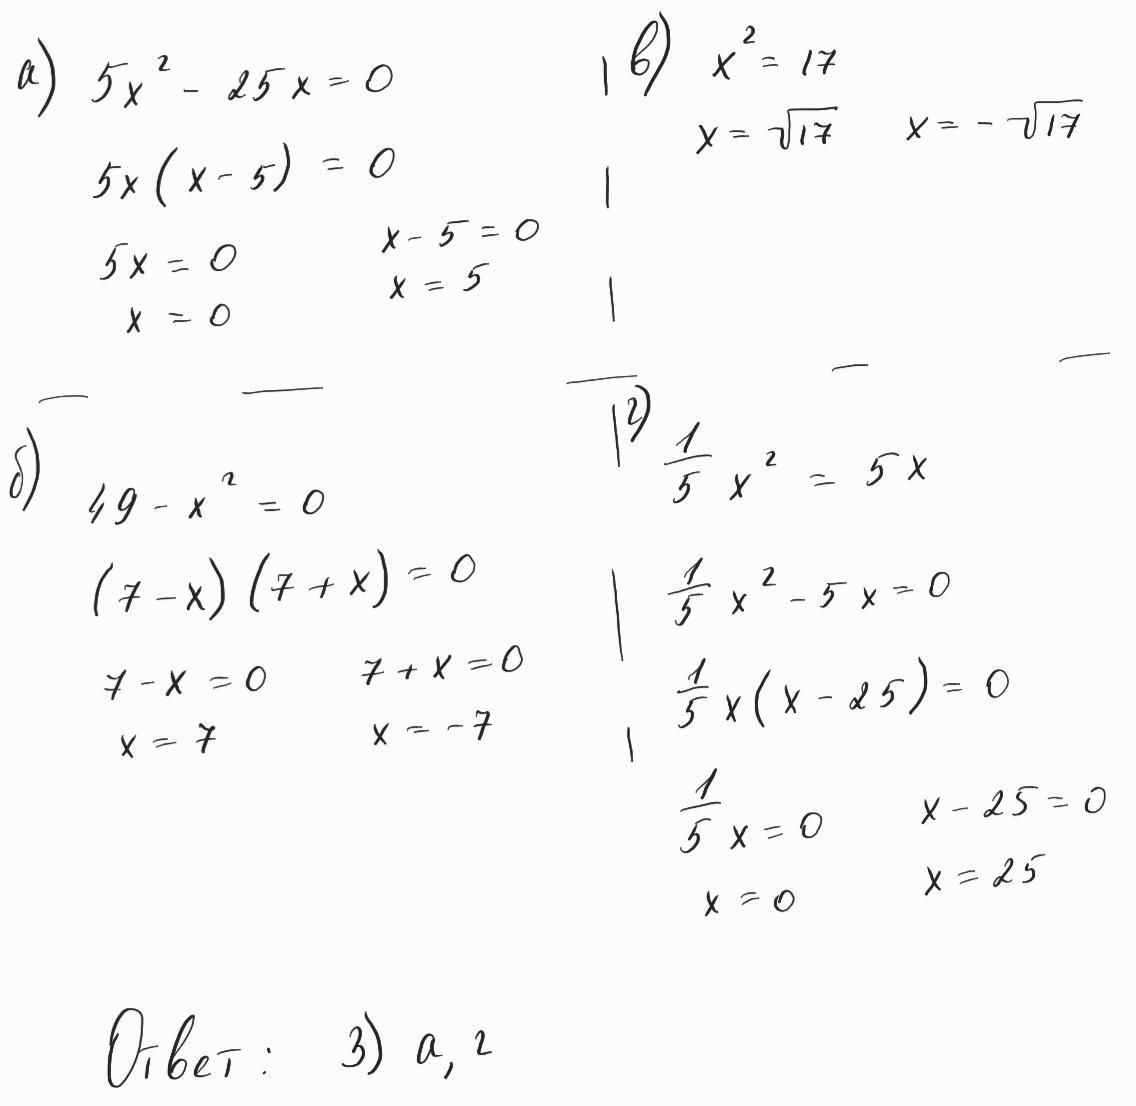 а) 5x² - 25x = 0
5x(x - 5) = 0
5x = 0 x - 5 = 0
x = 0 x = 5
б) 49 - x² = 0
(7 - x)(7 + x) = 0
7 - x = 0 7 + x = 0
x = 7 x = -7
в) x² = 17
x = √17 x = -√17
г) 1/5 x² = 5x
1/5 x² - 5x = 0
1/5 x(x - 25) = 0
1/5 x = 0 x - 25 = 0
x = 0 x = 25
Ответ: 3) а, г